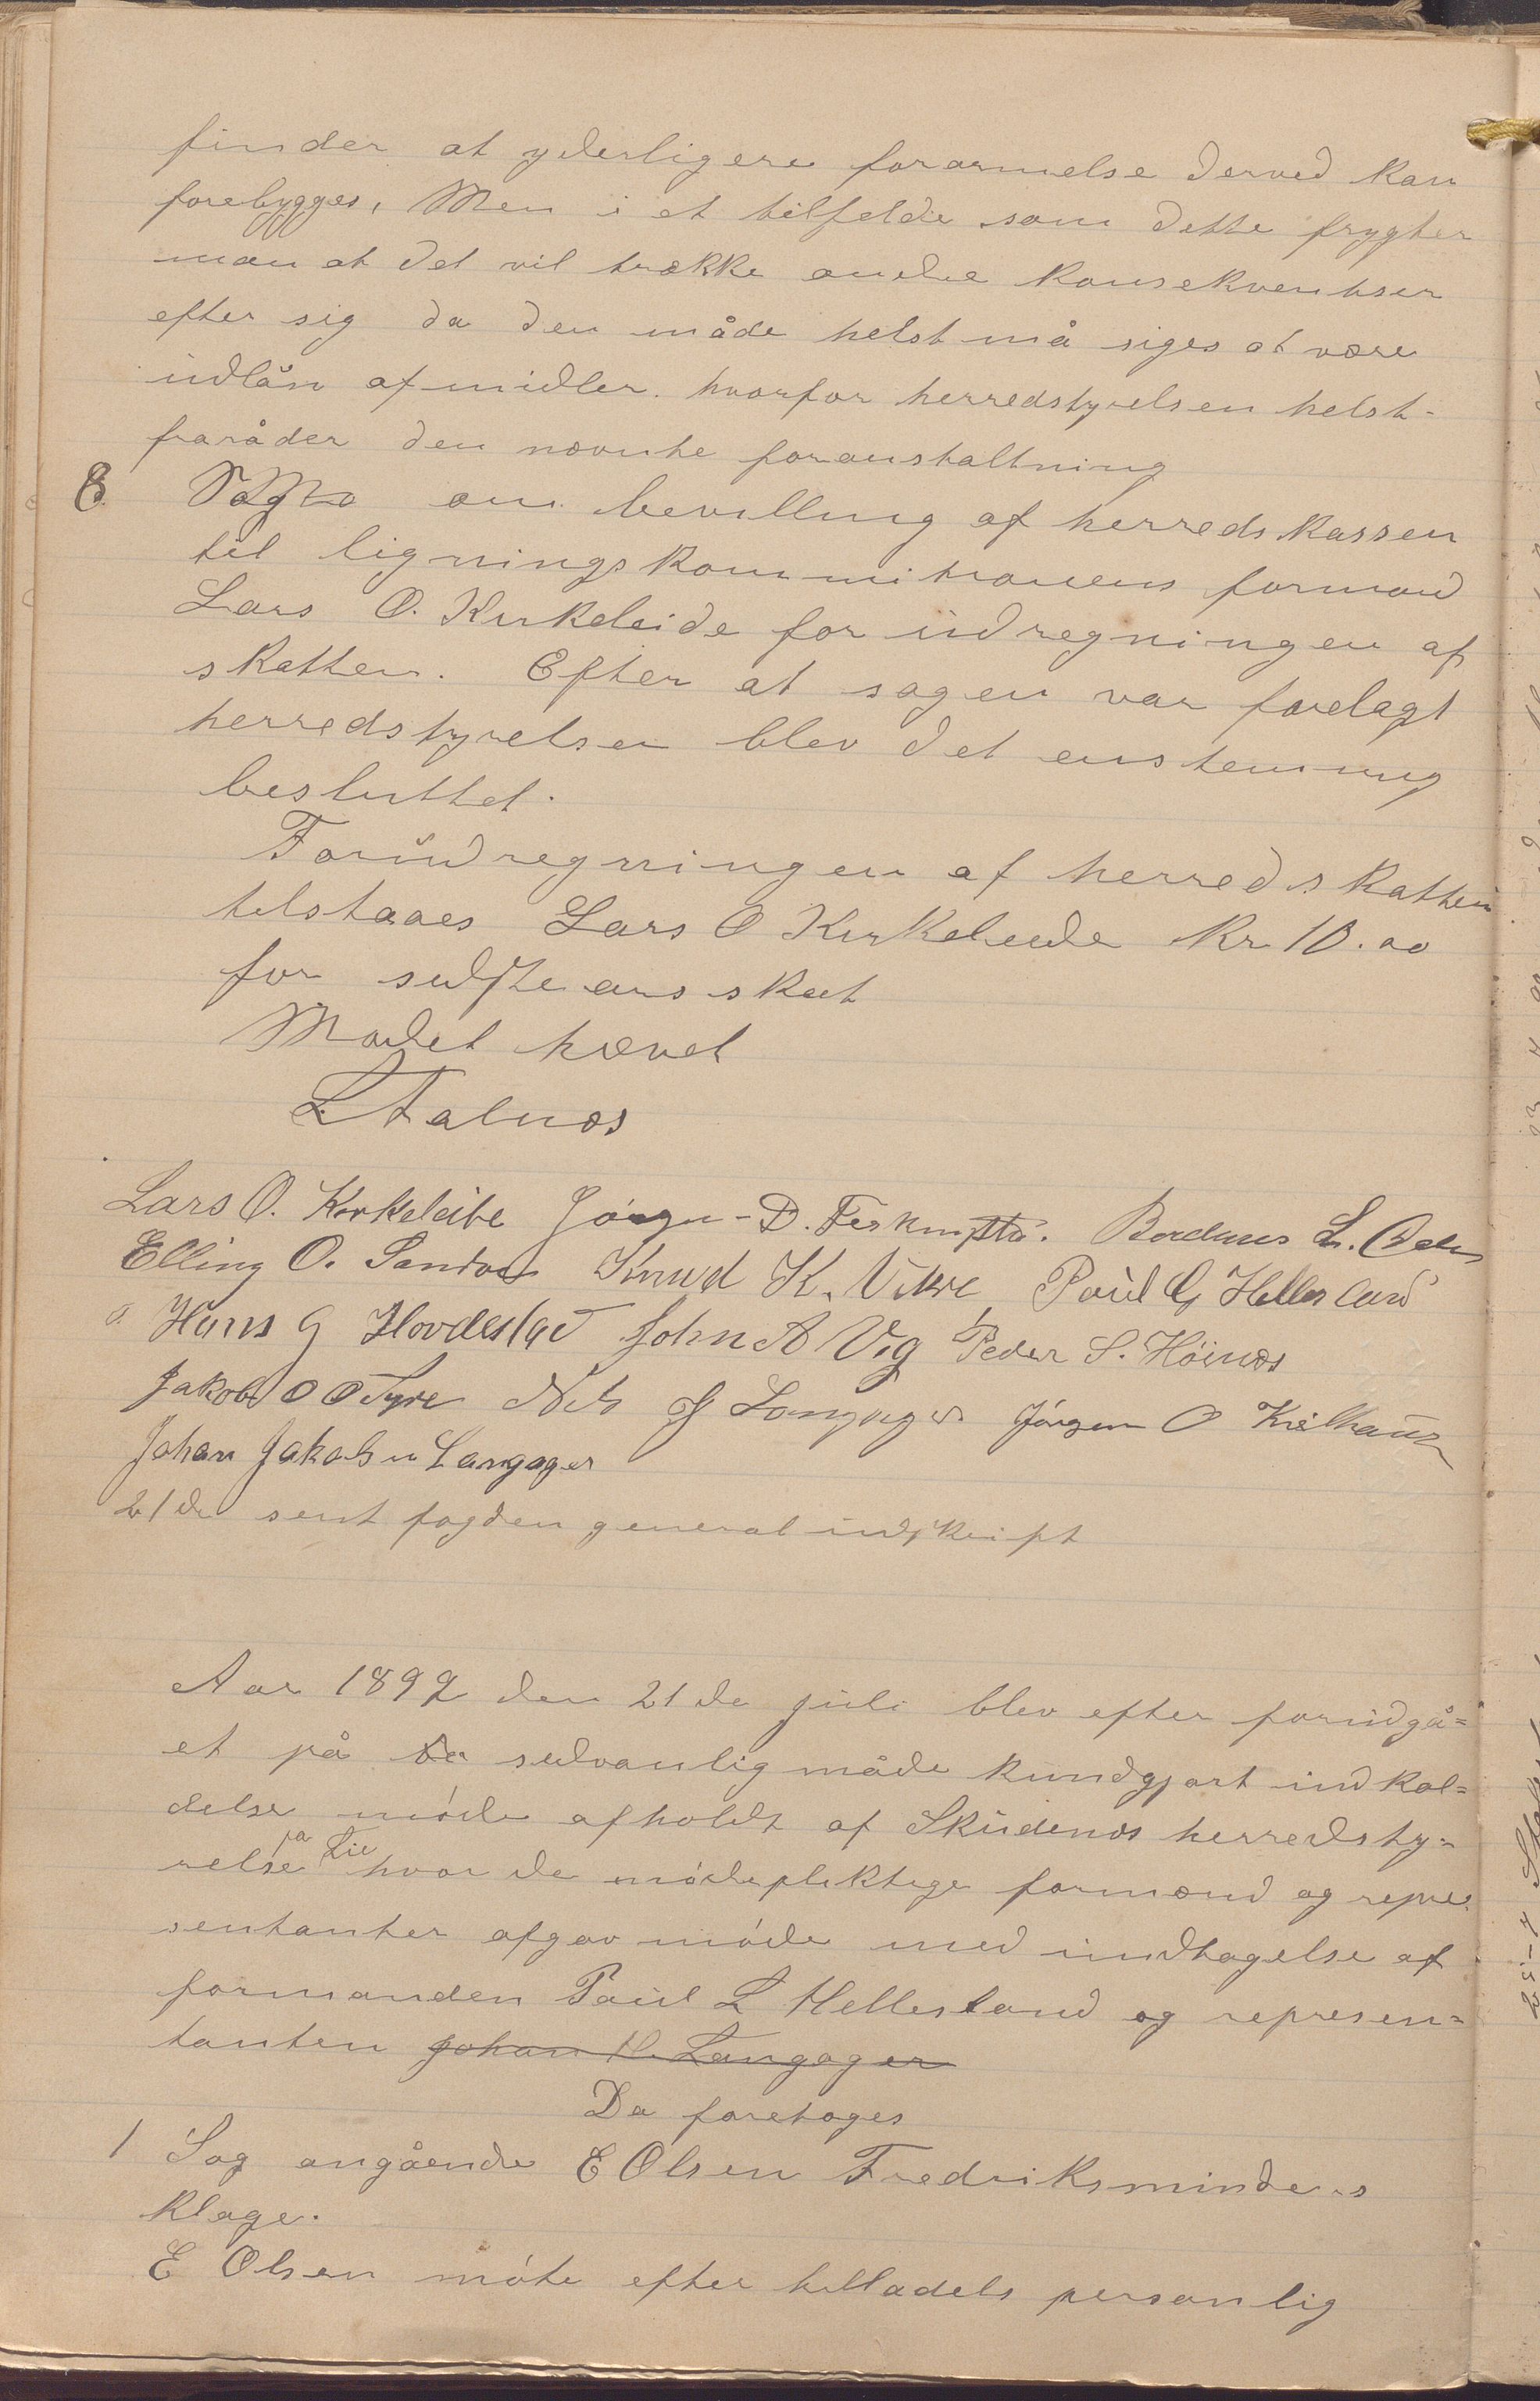 finder at yderligere forarmelse derved kan
forebygges, Men i et tilfelde som dette frygter
man at det vil trække andre konsekventser
efter sig da den måde helst må siges at være
udlån af midler. hvorfor herredstyrelsen helst-
fraråder den nævnte foranstaltning
8. om bevilling af herredskassen
til ligningskommitionens formand
Lars O. Kirkeleide for udregningen af
skatten. Efter at sagen var forelagt
herredstyrelsen blev det enstemmig
besluttet.
For udregningen af herredskatten
tilstaaes Lars O Kirkeleide Kr 10.00
for sidste aars skat
Mødet hævet
L Falnæs
Lars O. Kirkeleite Jørgen D. L.
Elling O. Sandvæ Knud K. Vikre, Paul G Hellesland
Hans G Hovdestad John A Vig Peder S. Höinæs
Jakob O O Syre Nels J Langager Jørgen O
Johan Jakobsen Langager
21de sent fogden general indskript
Aar 1892 den 21de juli blev efter forudgå=
et på sedvanlig måde kundgjort indkal=
delse møde afholdt af Skudenæs herredsty=
relse på Lie hvor de mødepliktige formænd og repre=
sentanter afgav møde med undtagelse af
formanden Paul L Hellesland og represen=
tanten Johan H. Langager
Da foretages
1 Sag angående E Olsen Fredriksmindes
klage.
E Olsen møte efter tilladels personlig